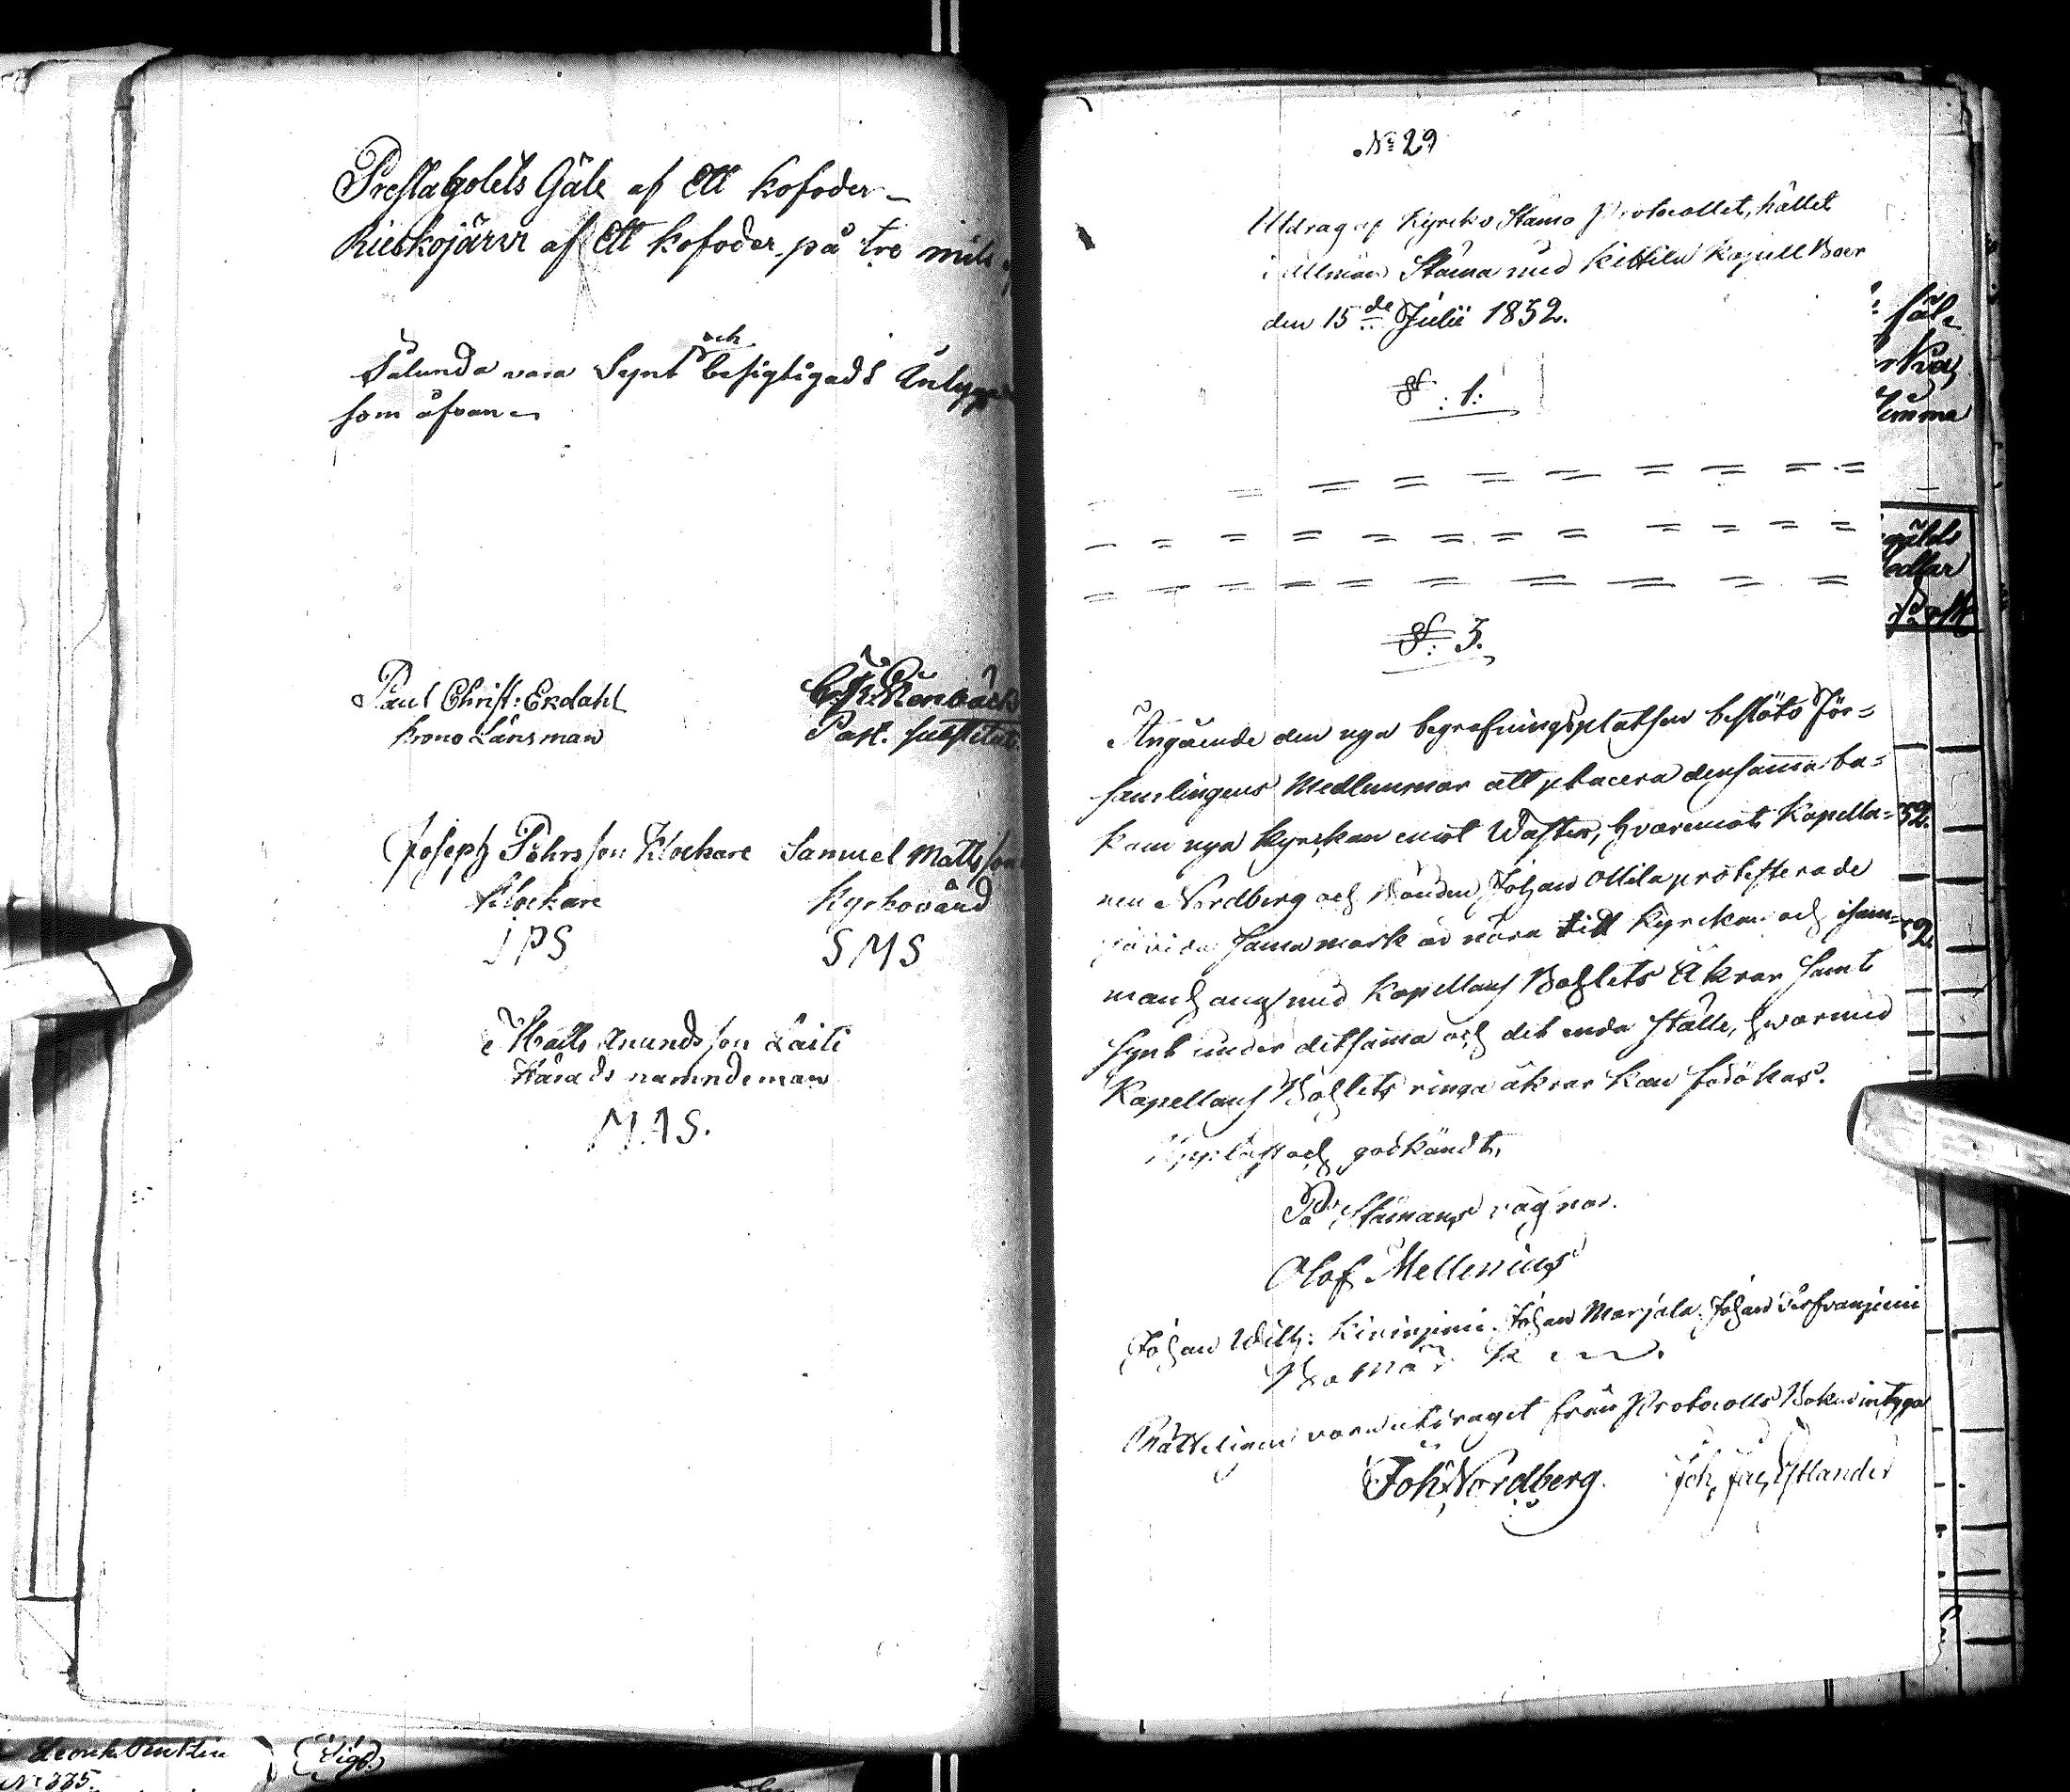 Prestabolets Gäle af Ett kofoder
Rieskojärvi af Ett kofoder på tre mils
Sålunda vara Synt och besigtigadt Intyga
som åfvan
Paul Christ: Ekdahl
Krono Länsman
Past. substitut
Joseph Pehrsson Klockare Samuel Mattsson
Klockare Kyrkovärd
JPS SMS
Matts Anundsson Laiti
Härads nämndeman
M.A.S.
No 29
Utdrag af Kyrko Stämo Protocollet, hållet
i allmän Stäma med Kittilä Kapell Boer
den 15de Julii 1832.
§: 1:
§: 3.
Angående den nya begrafningsplatsen beslöto För=
samlingens Medlemmar att placera densamma ba=
kom nya Kyrkan emot Väster, hvaremot Kapella=
nen Nordberg och Bonden Johan Ollila protesterade
sama mark så nära till Kyrkan och i sam=
manhang med Kapellans Bohlets Åkrar samt
synt under detsamma och det enda ställe, hvarmed
Kapellans Bohlets ringa åkrar kan förökas.
Uppläst och godkändt,
På Stämans vägnar.
Olof Mellenius
Johan Wilh: Kiviniemi. Johan Marjala. Johan
Bomärken.
Rätteligen vara utdraget från Protocolls Boken intyga
Joh Nordberg. Joh. Jac. Estlander
fäl
52.
52.
No 335.
(Sigd.)